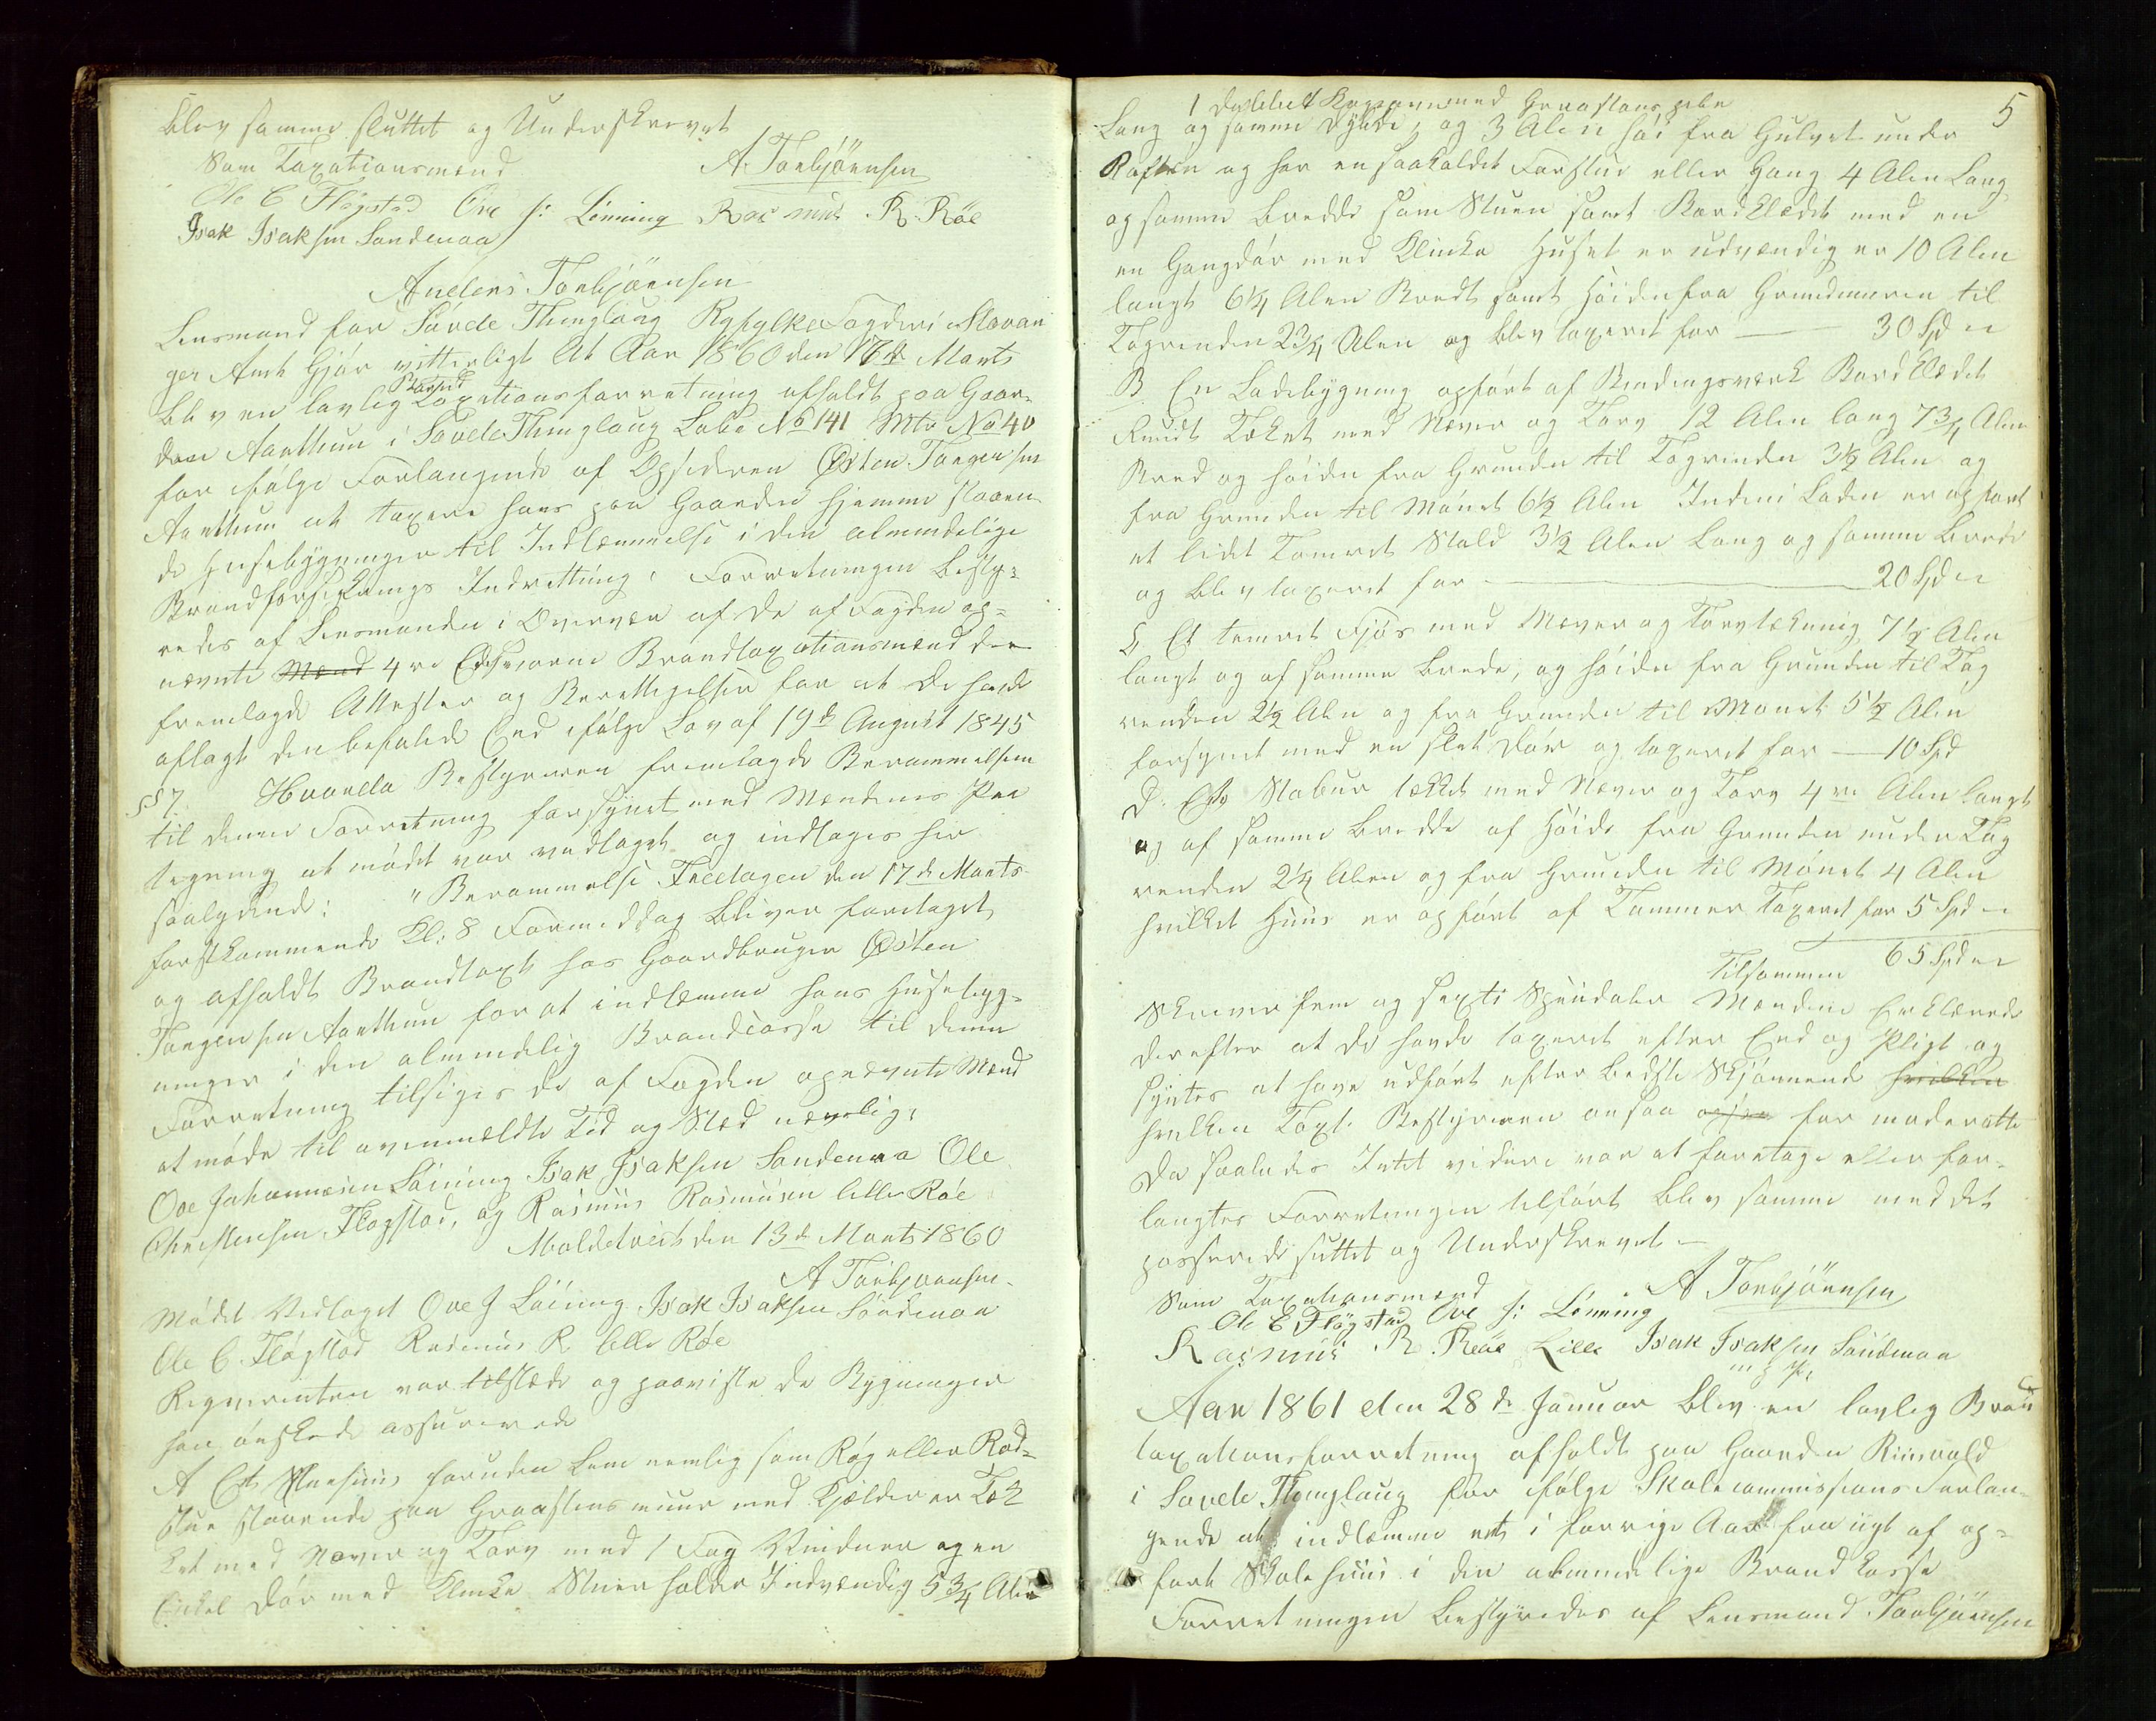 blev samme sluttet og Underskrevet
Som Taxationsmænd A. Torbjörnsen
Ole C Flogstad Ove J: Lönning Rasmus R. Röe
Isak Isaksen Sandenaa
Anders Torbjörnsen
Lensmand for Sövde Thinglaug Ryfylke Fogderi Stavan
ger Amt Gjör vitterligt At Aar 1860 den 17de Marts
blev en lovlig Brand Taxationsforretning afholdt paa Gaar-
den Aarthun i Sövde Thinglaug Løbe No 141 Mtr No 40
for ifølge Forlangende af Opsideren Østen Tangensen
Aarthun at taxere hans paa Gaarden hjemme staaen-
de Husebygninger til Indlemmelse i den almindelige
Brandforsikrings Indretning. Forretningen besty-
redes af Lensmanden i Overvær af de af Fogden op-
nævnte Mænd 4re Edsvorne Brandtaxationsmænd der
fremlagde Attester og Berettigelser for at de havde
aflagt den befalede Eed ifølge Lov af 19de August 1845
§§ 7. Hvorda Bestyreren fremlagde Berammelsen
til denne Forretning forsynet med Mændenes Paa
tegning at mødet var vedtaget og indtages her
saalydende: "Berammelse Fredagen den 17de Marts
førstkommende Kl: 8 Formiddag bliver foretaget
og afholdt Brandtaxt hos Gaardbruger Østen
Tangensen Aarthun for at indlemme hans Husebyg-
ninger i den almindelig Brandcasse til denne
Forretning tilsiges de af Fogden opnævnte Mænd
at møde til ovenmældte Tid og Sted nemlig:
Ove Johannesen Løining Isak Isaksen Sandenaa Ole
Christensen Flogstad, og Rasmus Rasmusen lille Röe
Moldetveit den 13de Marts 1860
A Torbjørnsen
Mødet Vedtaget Ove J Løining Isak Isaksen Sandenaa
Ole C Flögstad Rasmus R lille Röe
Reqvirenten var tilstede og paaviste de Bygninger
han ønskede assurerede
A Et Vaaningshuus foruden Lem nemlig som Røg eller Rød-
stue staaende paa Graastensmuur med Kjelder er Tæk
ket med Næver og Torv med 1 Fag Vinduer og en
Enkel Dør med Klinke Stuen holder Indvændig 5 3/4 Alen
5
1 dobbelt Kogeovn med Graastenspibe
Lang og samme Dybde, og 3 Alen høi fra Gulvet under
Raften og har en saakaldt Forstue eller Gang 4 Alen Lang
og samme bredde som Stuen samt Bordklædt med en
en Gangdør med Klinke Huset er udvændig er 10 Alen
langt 6 1/4 Alen Bredt samt Høiden fra Grundmuren til
Tagrenden 2 3/4 Alen og blev taxeret for — 30 Spd
B. En Ladebygning opført af Bindingsværk Bordklædt
Rundt Tækket med Næver og Torv 12 Alen lang 7 3/4 Alen
Bred og høiden fra Grunden til Tagrenden 3 1/2 Alen og
fra Grunden til Mønet 6 1/2 Alen Inden i Laden er opført
et lidet Tømret Stald 3 1/2 Alen Lang og samme brede
og blev taxeret for — 20 Spd
C Et tømret Fjøs med Næver og Torvtækning 7 1/2 Alen
langt og af samme brede, og høiden fra Grunden til Tag
renden 2 1/2 Alen og fra Grunden til Mønet 5 1/2 Alen
forsynet med en slet Dør og taxeret for — 10 Spd
D. Et Stabur tækket med Næver og Torv 4re Alen langt
og af samme bredde af Høide fra Grunden under Tag
renden 2 1/4 Alen og fra Grunden til Mønet 4 Alen
hvilket Huus er opført af Tømmer Taxeret for 5 Spd
Tilsammen 65 Spd
Skriver fem og sexti Speciedaler Mændene Erklærede
derefter at de havde taxeret efter Eed og Pligt og
syntes at have udført efter bedste Skjønnende hvilken
hvilken Taxt Bestyreren ansaa for moderatte
Da saaledes Intet videre var at foretage eller for-
langtes Forretningen tilført blev samme med det
passerede sluttet og Underskrevet —
Som Taxationsmænd A Torbjörnsen
Ole C Flögstad Ove J: Lönning
Rasmus R. Röe Lille Isak Isaksen Sandenaa
m f P.
Aar 1861 den 28de Januar blev en lovlig Brand
taxationsforretning afholdt paa Gaarden Riisvold
i Sövde Thinglaug for ifølge Skolecommissions Forlan-
gende at indlemme et i forrige Aar fra nyt af op-
ført Skolehuus i den almindelige Brandkasse
Forretningen bestyredes af Lensmand Torbjörnsen